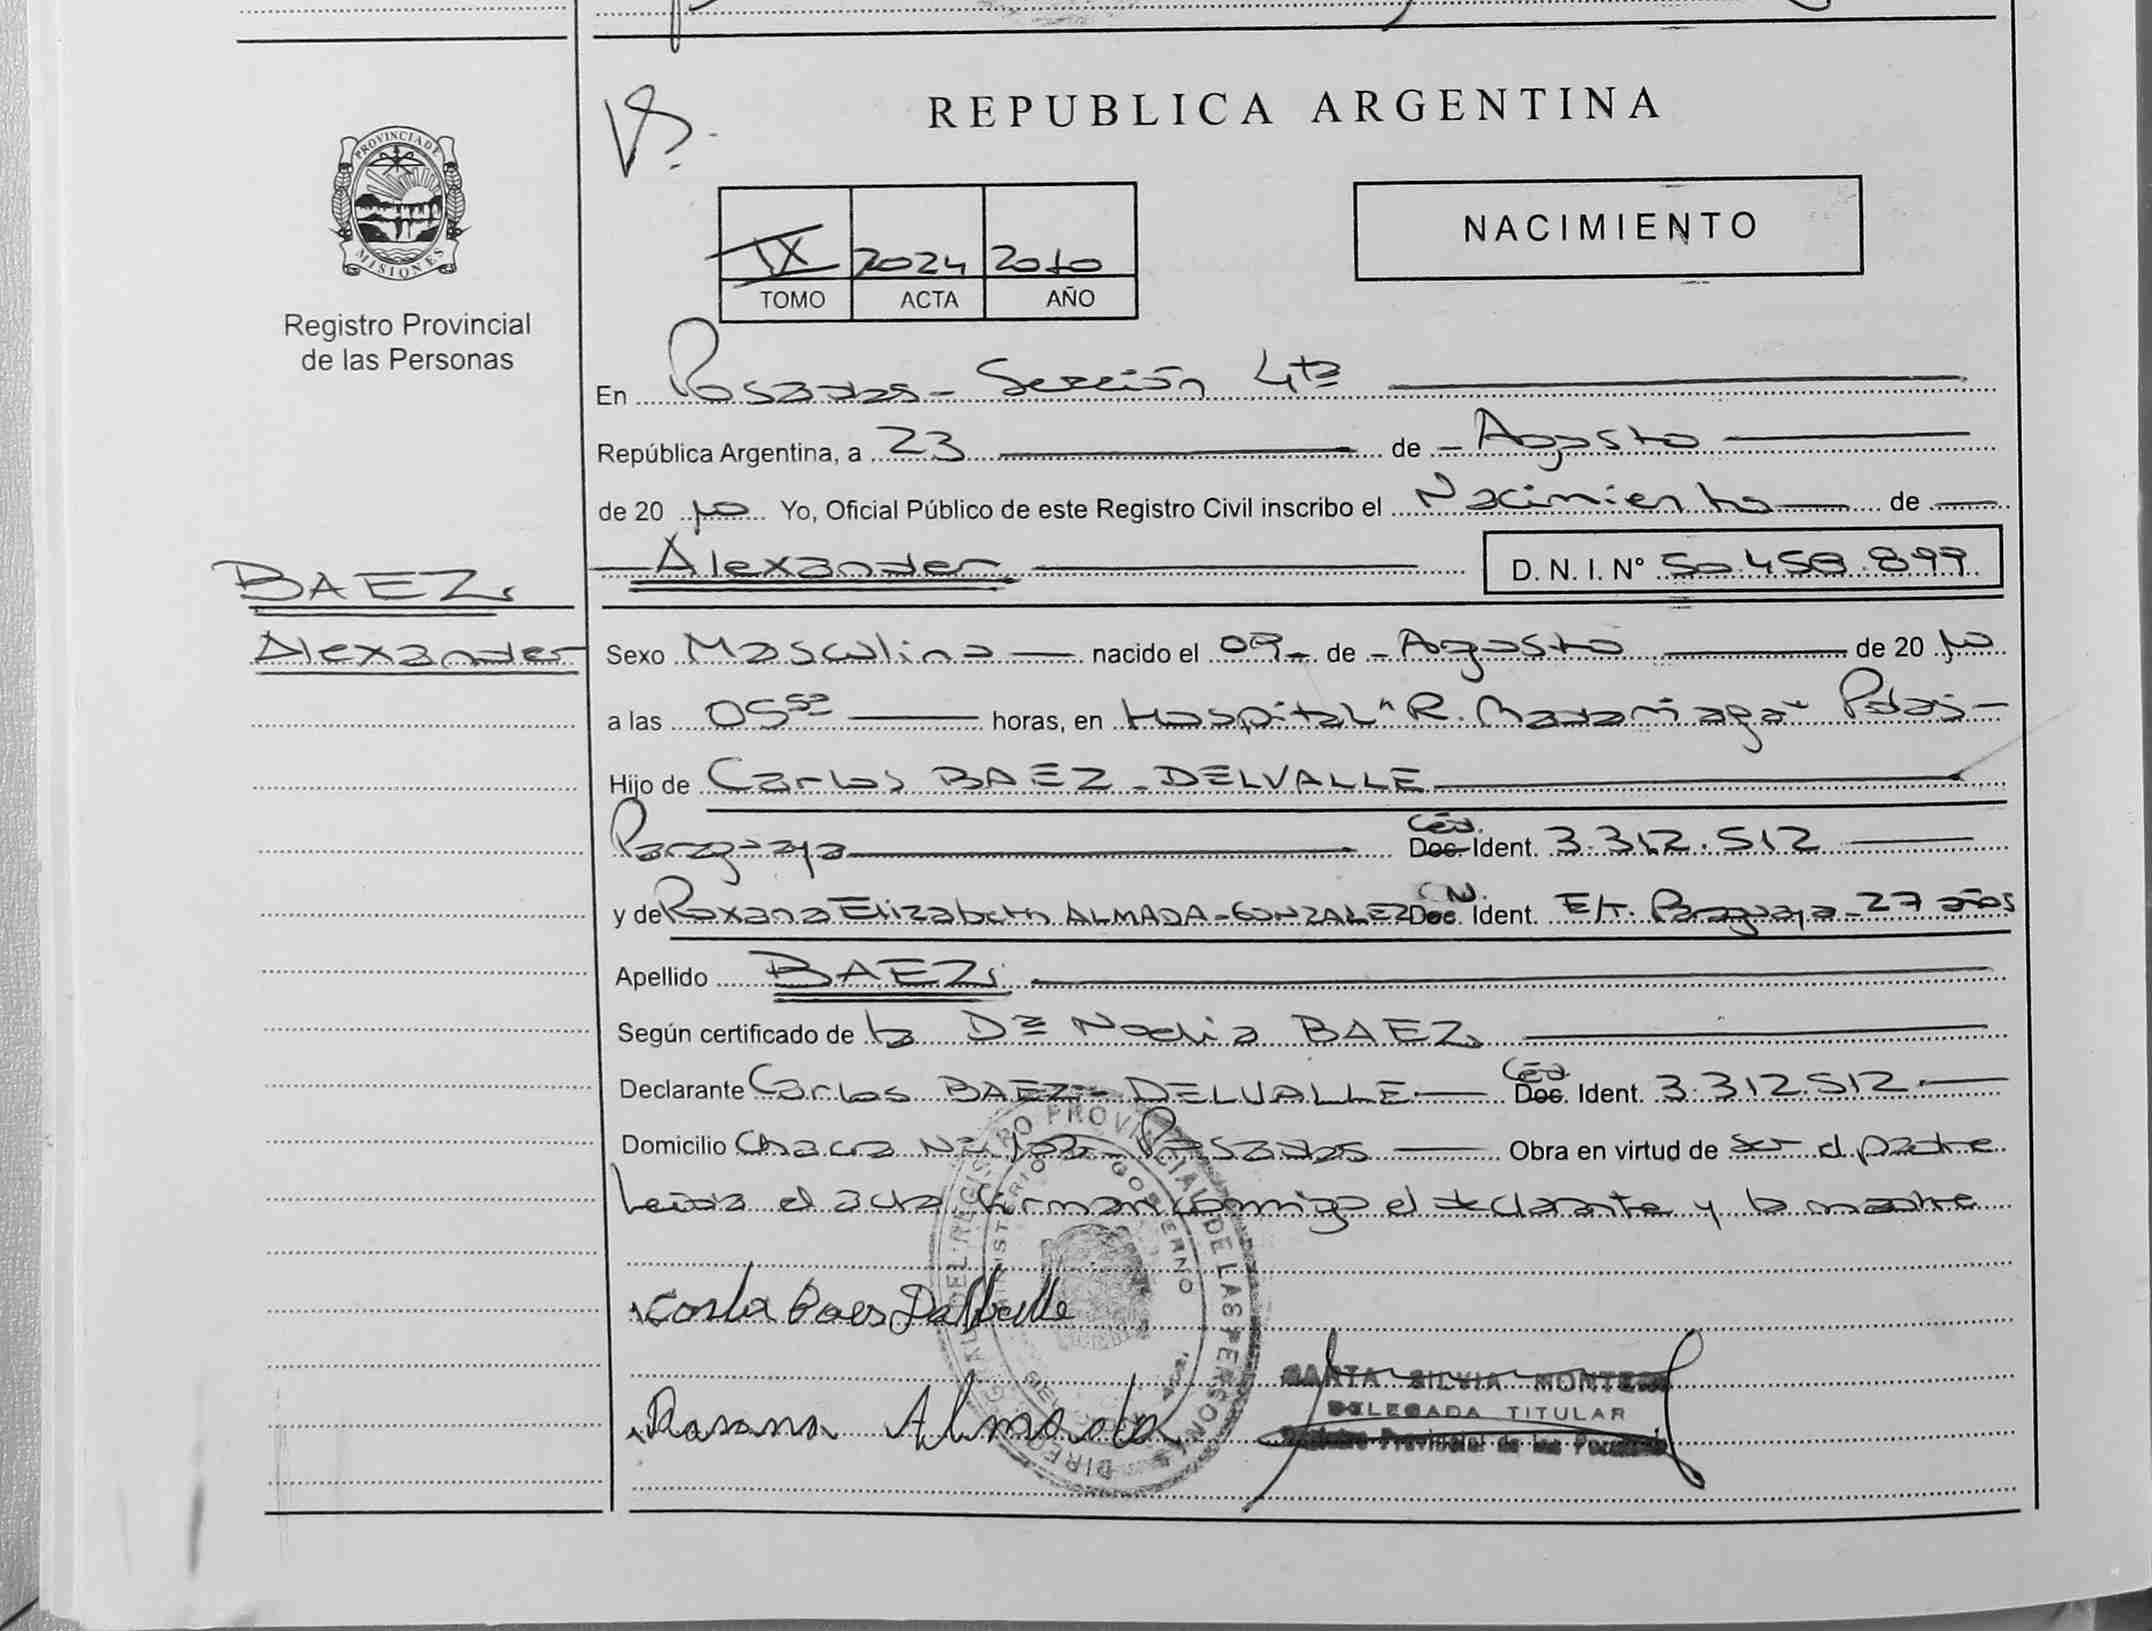 REPUBLICA ARGENTINA
PROVINCIA DE
MISIONES
Registro Provincial
de las Personas
NACIMIENTO
IX 2024 2010
TOMO ACTA AÑO
En Posadas - Sección 4ta
República Argentina, a 23 de - Agosto
de 20 10 Yo, Oficial Público de este Registro Civil inscribo el Nacimiento de
Alexander D. N. I. N° 50.458.899
BAEZ.
Alexander
Sexo Masculino nacido el 09 - de - Agosto de 20 10
a las 05 52 horas, en Hospital "R. Madariaga" Pdas -
Hijo de Carlos BAEZ - DELVALLE
Paraguaya Céd. Doc. Ident. 3.312.512
y de Roxana Elizabeth ALMADA - GONZALEZ Doc. Ident. E/T. Paraguaya - 27 años
Apellido BAEZ.
Según certificado de la Dra Nadia BAEZ.
Declarante Carlos BAEZ - DELVALLE Céd. Doc. Ident. 3.312.512
Domicilio Chacra Posadas Obra en virtud de ser el padre
Leida el acta firman conmigo el declarante y la madre
REGISTRO PROVINCIAL DE LAS PERSONAS
MINISTERIO GOBIERNO
Almada
SILVIA MONTE
DELEGADA TITULAR
Registro Provincial de las Personas